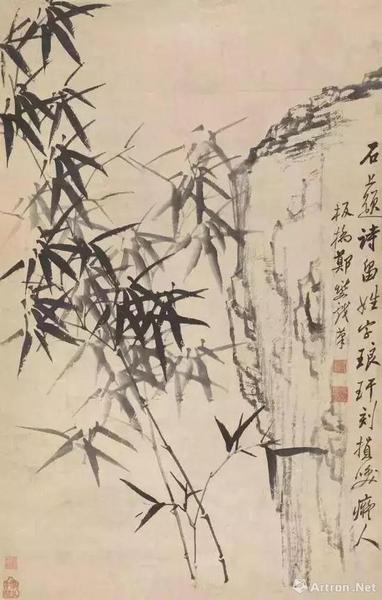 石上題詩留姓字琅玕刻損笑癡人
板橋鄭燮戲筆
Artron.Net